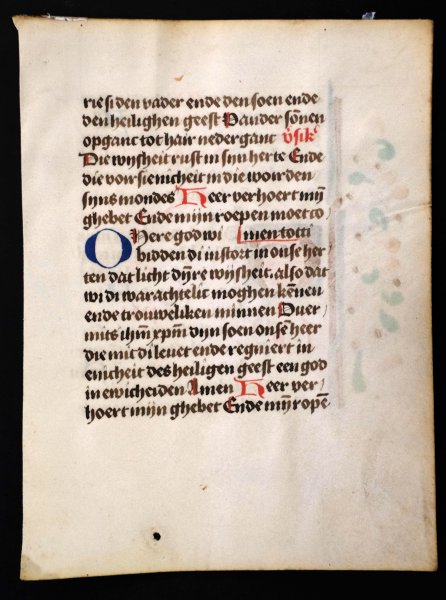 rie si den vader ende den soen ende
den heilighen geest Vander sonnen
opganc tot hair nederganc
Die wijsheit rust in sijn herte Ende
die voirsienicheit in die woirden
sijns mondes Heer verhoert mijn
ghebet Ende mijn roepen moet co
O Here god wi men tot ti
bidden di instort in onse her
ten dat licht dijnre wijsheit. also dat
wi di warachtelic moghen kennen
ende trouweliken minnen Ouer
mits ihm xpm dijn soen onse heer
die mit di leuet ende regniert in
enicheit des heiligen geest een god
in ewicheiden Amen Heer ver
hoert mijn ghebet Ende mijn ropē